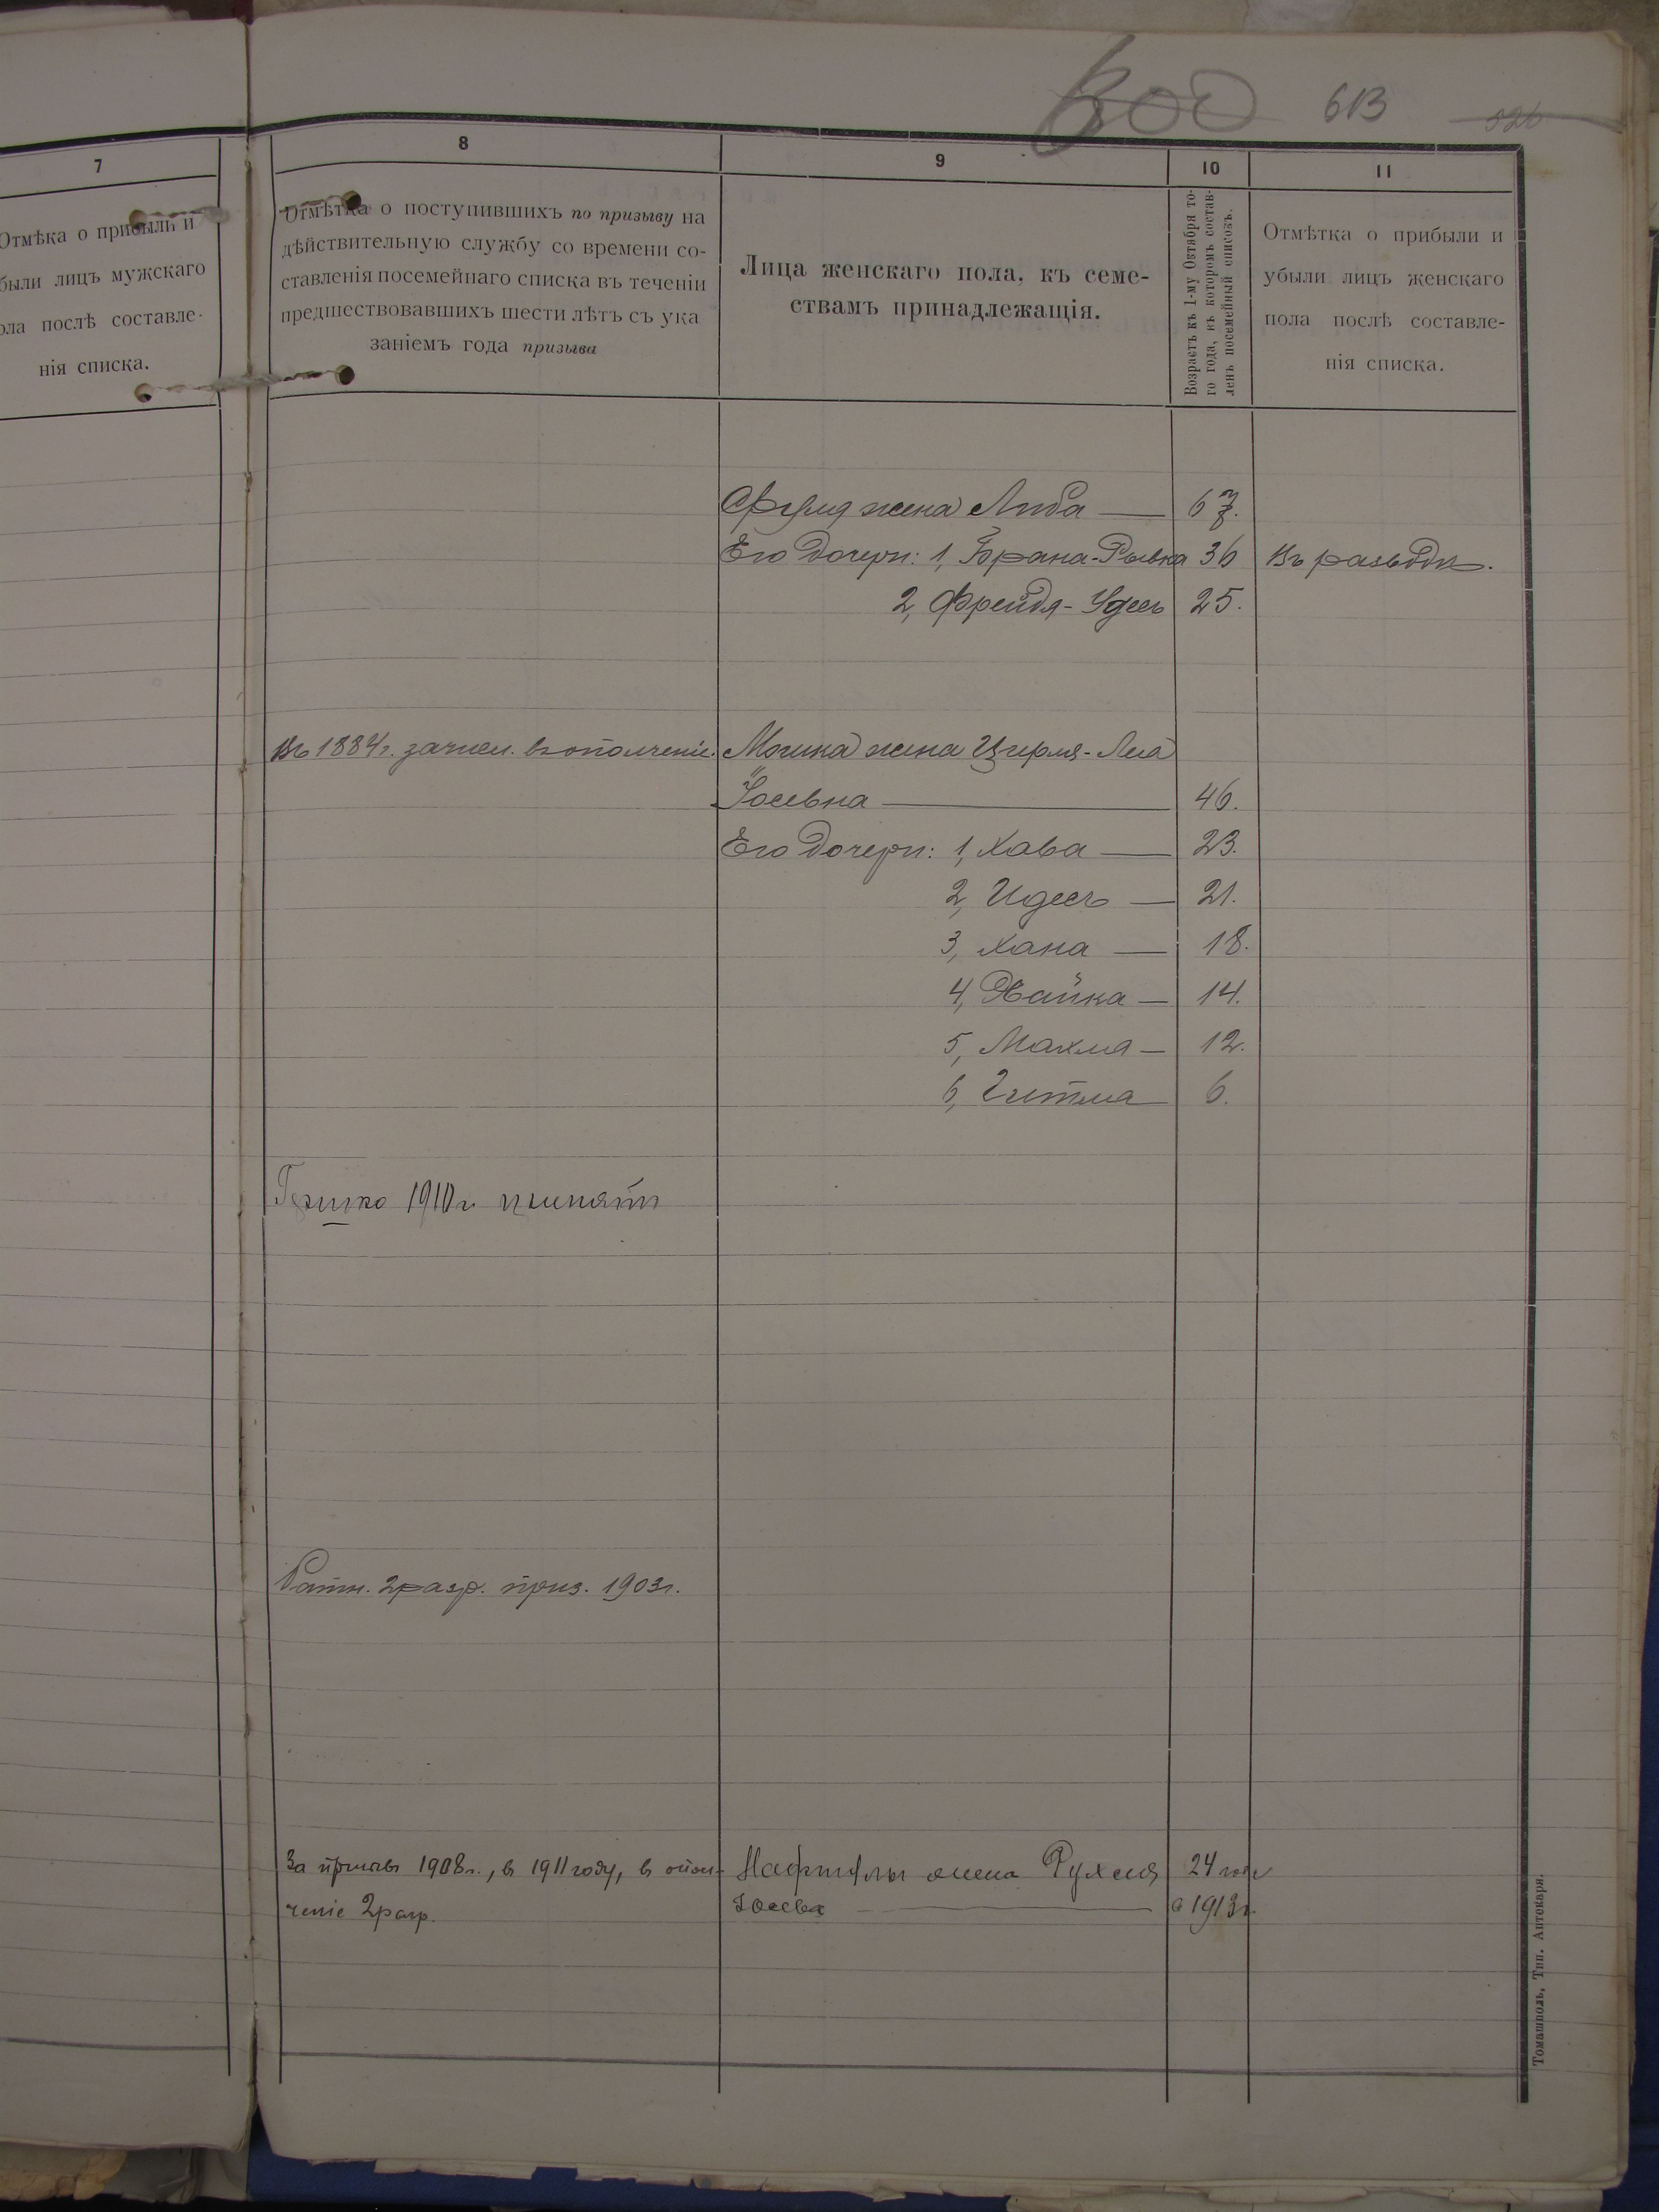 600 613 526
7
Отмѣка о прибыли и
были лицъ мужскаго
ола послѣ составле-
нія списка.
8
Отмѣтка о поступившихъ по призыву на
дѣйствительную службу со времени со-
ставленія посемейнаго списка въ теченіи
предшествовавшихъ шести лѣтъ съ ука
заніемъ года призыва
9
Лица женскаго пола, къ семе-
ствамъ принадлежащія.
10
Возрастъ къ 1-му Октября то-
го года, въ которомъ состав-
ленъ посемейный списокъ.
11
Отмѣтка о прибыли и
убыли лицъ женскаго
пола послѣ составле-
нія списка.
жена Либа 67.
Его дочери: 1, Брана-Рывка 36 Въ разводѣ.
2, Фрейдя-Удесъ 25.
Въ 1884г. зачисл. въ ополченіе. Мошка жена Цирля-Леа
Іосевна 46.
Его дочери: 1, Хава 23.
2, Идесъ 21.
3, Хана 18.
4, Хайка 14.
5, Махля 12.
6, Гитля 6.
1910 г. принятъ
Ратн. 2 разр. приз. 1903г.
За призывъ 1908г., в 1911 году, в опол-
ченіе 2 разр.
Нафтулы жена Рухля 24 года
Іосева в 1913г.
Томашполь, Тип. Аптекаря.